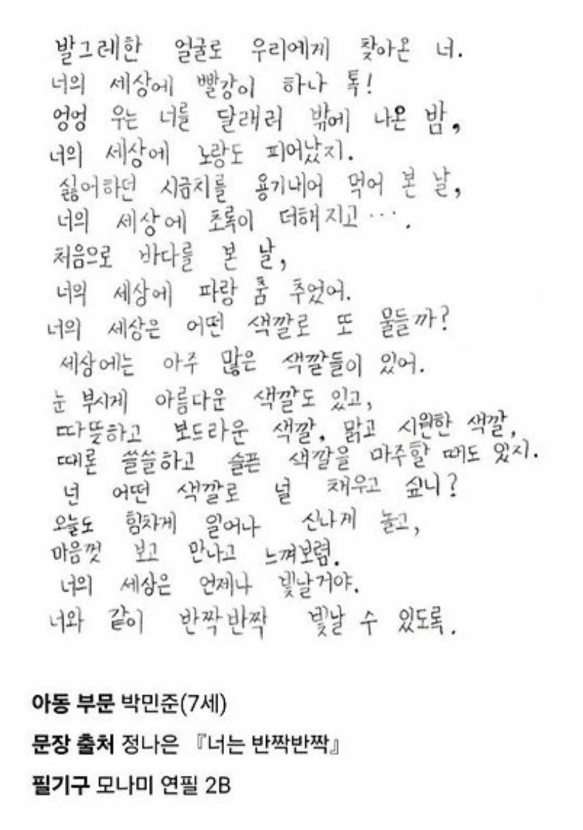 발그레한 얼굴로 우리에게 찾아온 너.
너의 세상에 빨강이 하나 톡!
엉엉 우는 너를 달래러 밖에 나온 밤,
너의 세상에 노랑도 피어났지.
싫어하던 시금치를 용기내어 먹어 본 날,
너의 세상에 초록이 더해지고···.
처음으로 바다를 본 날,
너의 세상에 파랑 춤 추었어.
너의 세상은 어떤 색깔로 또 물들까?
세상에는 아주 많은 색깔들이 있어.
눈 부시게 아름다운 색깔도 있고,
따뜻하고 보드라운 색깔, 맑고 시원한 색깔,
때론 쓸쓸하고 슬픈 색깔을 마주할 때도 있지.
넌 어떤 색깔로 널 채우고 싶니?
오늘도 힘차게 일어나 신나게 놀고,
마음껏 보고 만나고 느껴보렴.
너의 세상은 언제나 빛날거야.
너와 같이 반짝반짝 빛날 수 있도록.
아동 부문 박민준(7세)
문장 출처 정나은 『너는 반짝반짝』
필기구 모나미 연필 2B